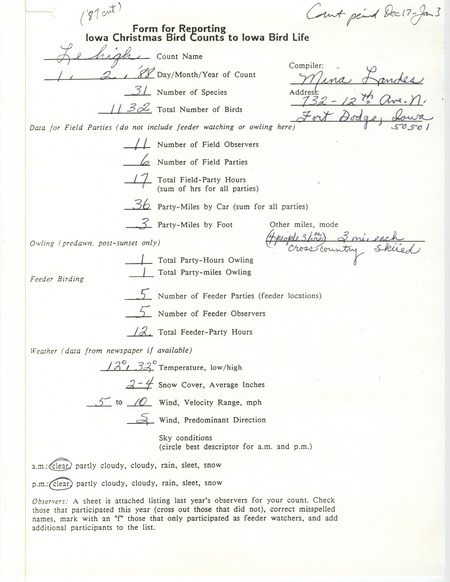 ('87 cnt)
Count period Dec 17-Jan 3
Form for Reporting
Iowa Christmas Bird Counts to Iowa Bird Life
Lehigh Count Name
1, 2, '88 Day/Month/Year of Count
Compiler:
Mina Landes
31 Number of Species
Address:
732-12th Ave. N.
1132 Total Number of Birds
Fort Dodge, Iowa
50501
Data for Field Parties (do not include feeder watching or owling here)
11 Number of Field Observers
6 Number of Field Parties
17 Total Field-Party Hours
(sum of hrs for all parties)
36 Party-Miles by Car (sum for all parties)
3 Party-Miles by Foot
Other miles, mode
(4 people 3 hrs) 3 mi. each
cross country skiied
Owling (predawn, post-sunset only)
1 Total Party-Hours Owling
1 Total Party-miles Owling
Feeder Birding
5 Number of Feeder Parties (feeder locations)
5 Number of Feeder Observers
12 Total Feeder-Party Hours
Weather (data from newspaper if available)
12°, 32° Temperature, low/high
2-4 Snow Cover, Average Inches
5 to 10 Wind, Velocity Range, mph
S Wind, Predominant Direction
Sky conditions
(circle best descriptor for a.m. and p.m.)
a.m.: clear, partly cloudy, cloudy, rain, sleet, snow
p.m.: clear, partly cloudy, cloudy, rain, sleet, snow
Observers: A sheet is attached listing last year's observers for your count. Check
those that participated this year (cross out those that did not), correct misspelled
names, mark with an "f" those that only participated as feeder watchers, and add
additional participants to the list.